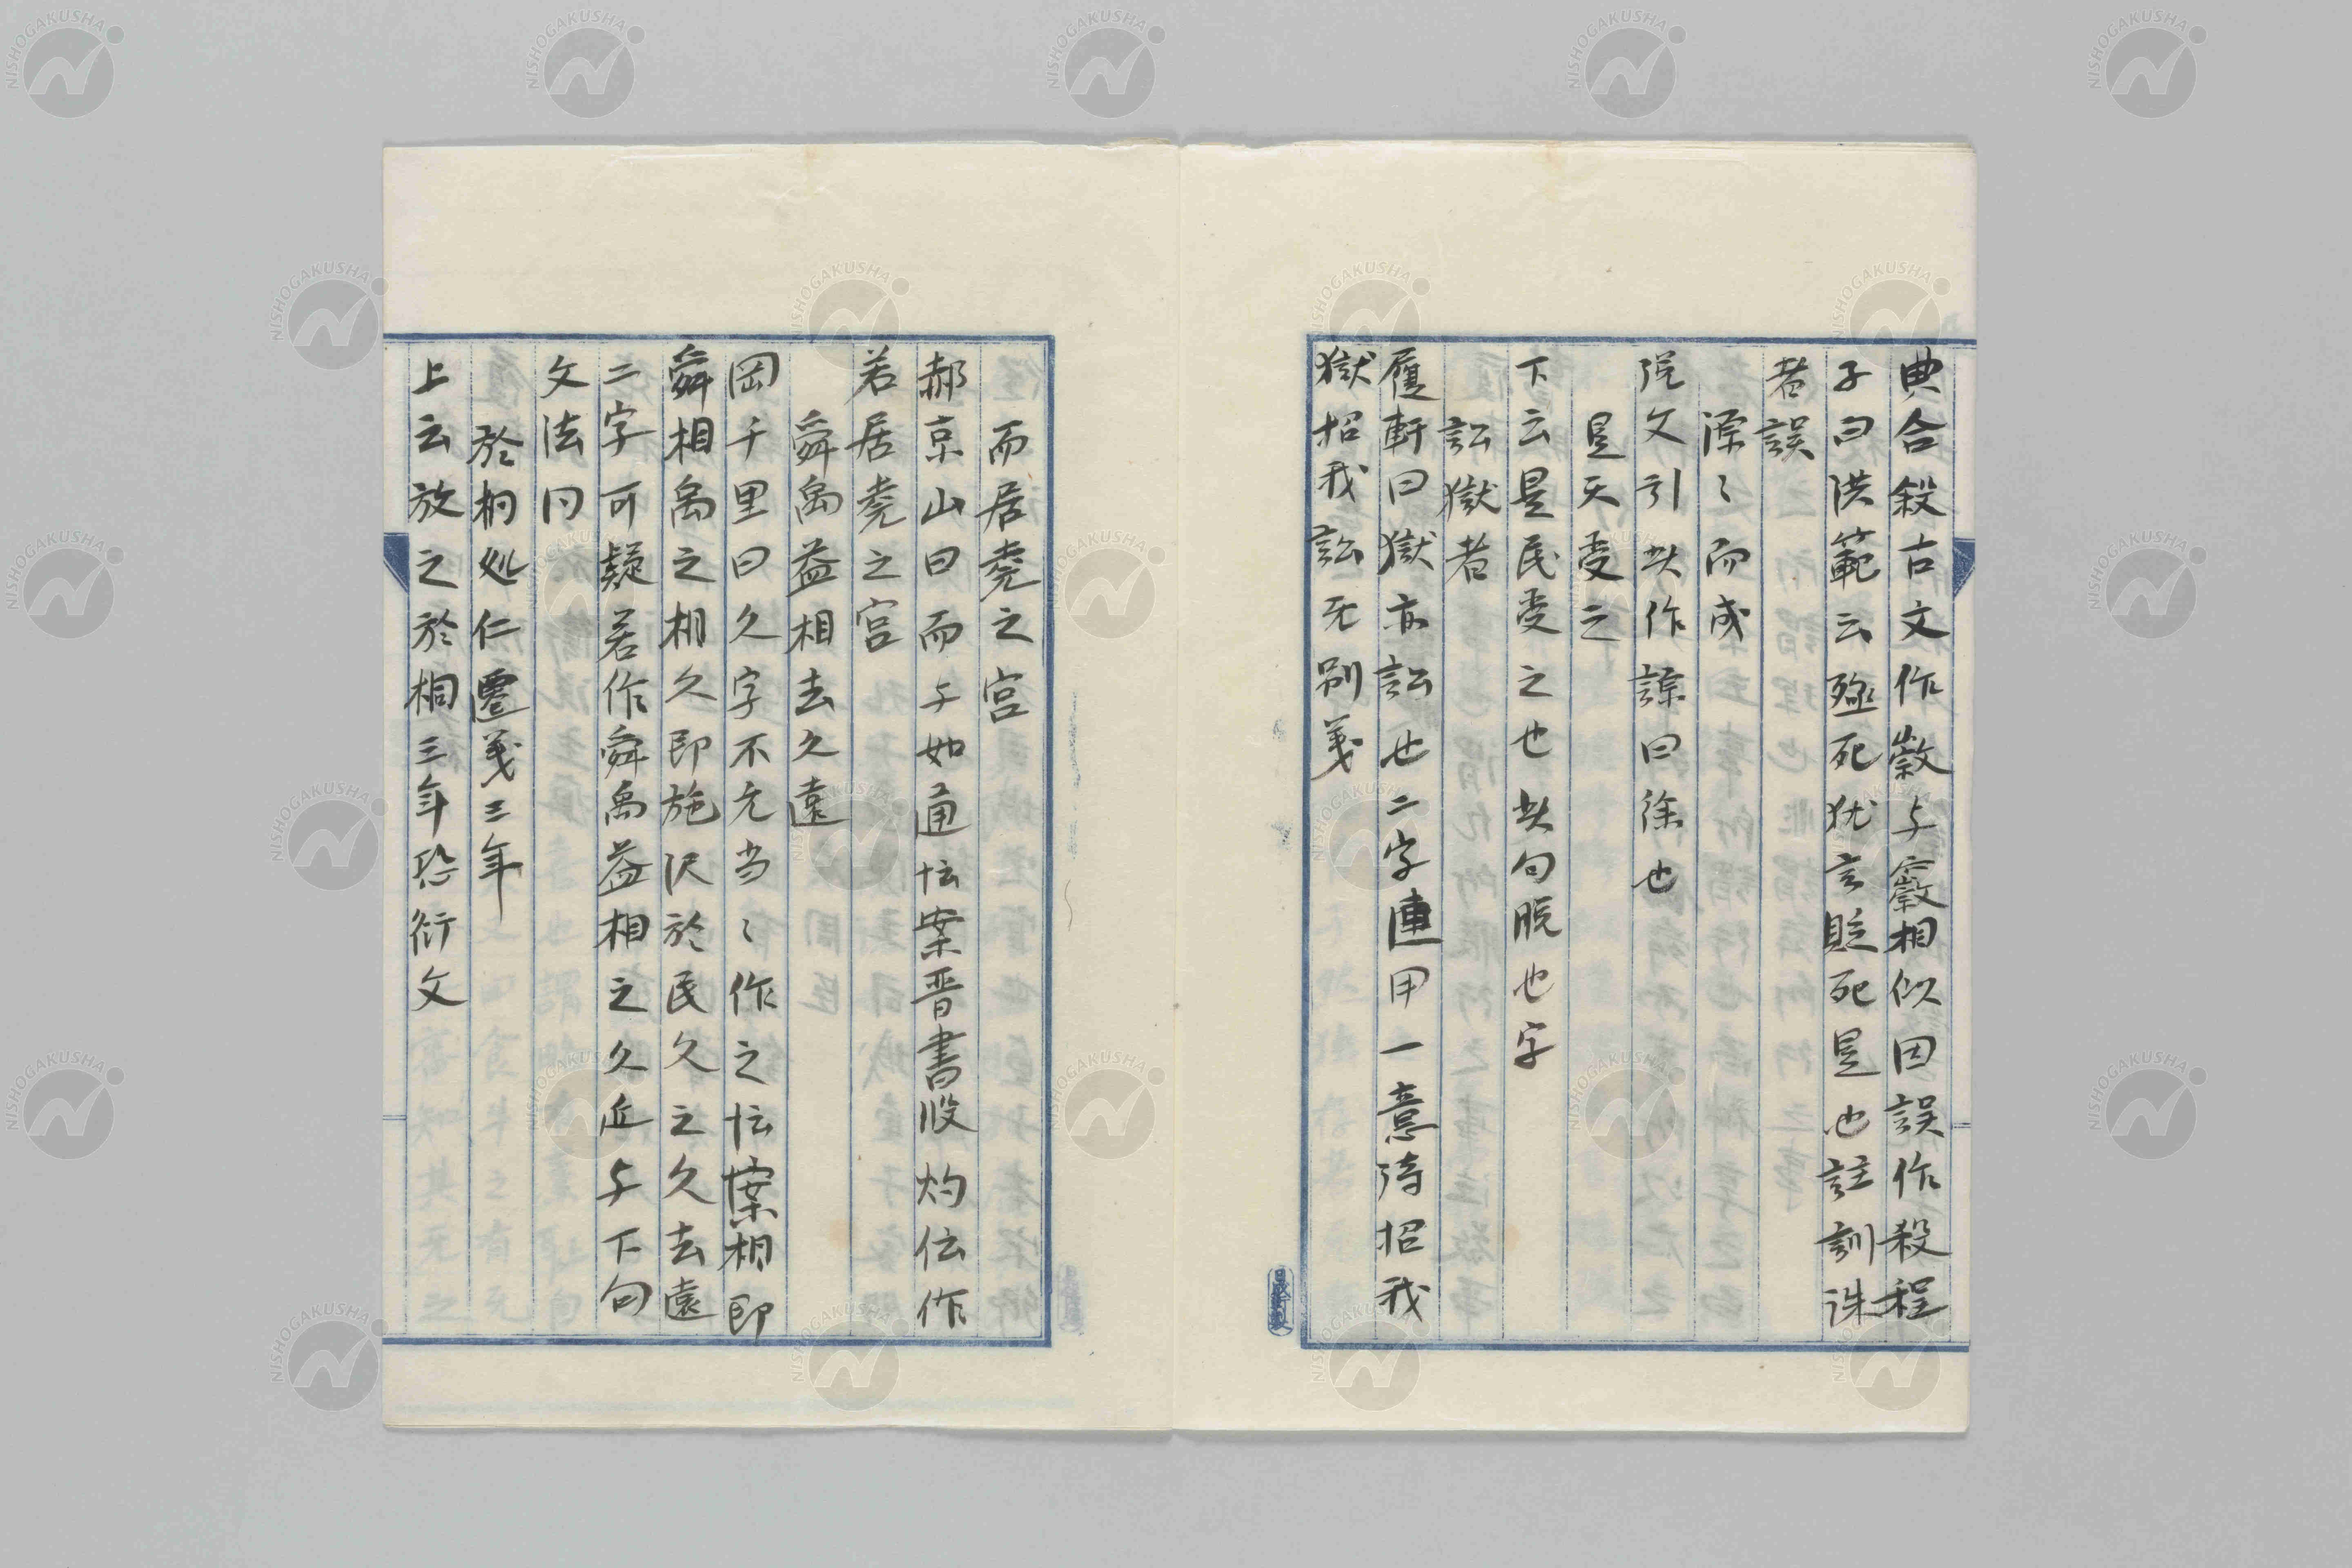 典合殺古文作㲋与竅相似因誤作殺程
子曰洪範云殛死犹言貶死是也註訓誅
者誤
源〻而成
説文引此作謜曰徐也
是天受之
下云是民受之也此句脱也字
訟獄者
履軒曰獄亦訟也二字連用一意待招我
獄招我訟无别義
而居堯之宮
郝京山曰而与如通忲案晋書段灼伝作
若居堯之宮
舜禹益相去久遠
岡千里曰久字不允当〻作之忲案相即
舜相禹之相久即施沢於民久之久去遠
二字可疑若作舜禹益相之久近与下句
文法同
於桐処仁遷義三年
上云放之於桐三年恐衍文
NISHOGAKUSHA